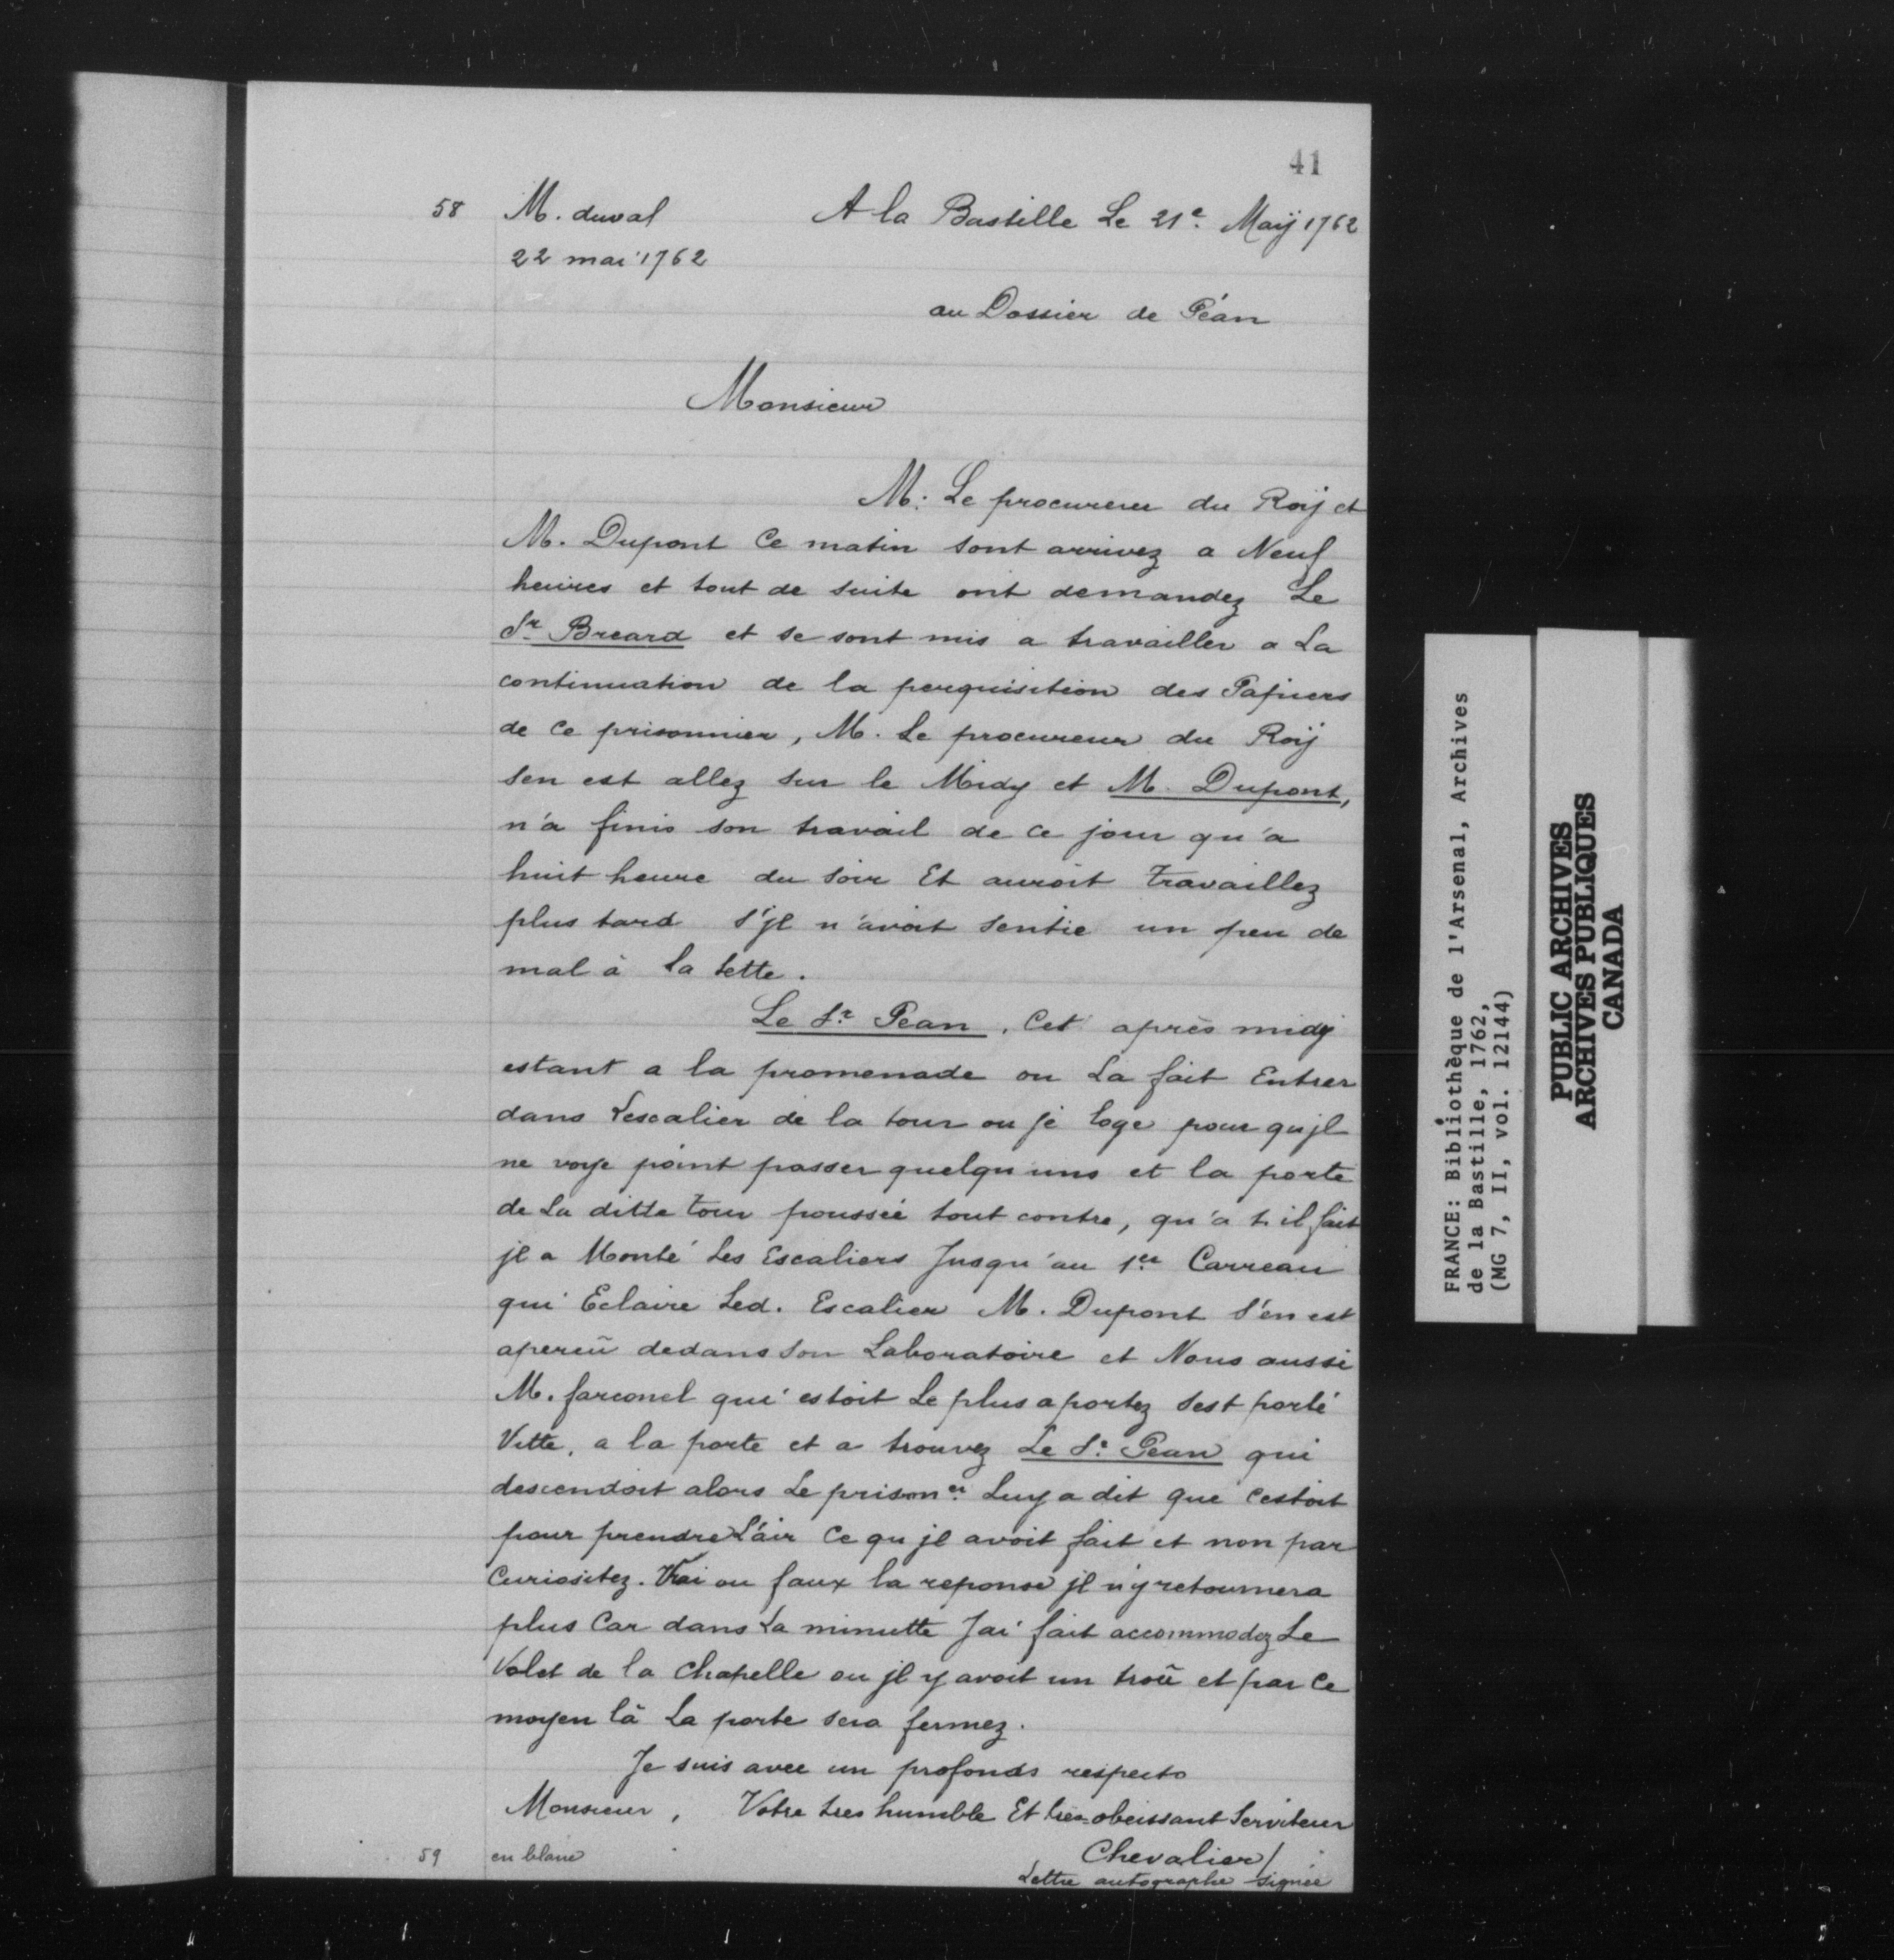 41
58 M. duval A la Bastille Le 21e. Maÿ 1762
22 mai 1762
au Dossier de Péan
Monsieur
M. Le procureur du Roij et
M. Dupont Ce matin sont arrivez a Neuf
heures et tout de suite ont demandez Le
Sr. Breard et se sont mis a travailler a La
continuation de la perquisition des Papiers
de Ce prisonnier, M. Le procureur du Roij
sen est allez sur le Midy et M. Dupont,
n'a finis son travail de ce jour qu'a
huit heure du soir Et auroit travaillez
plus tard s'jl n'avoit sentie un peu de
mal à la tette.
Le Sr. Pean, Cet après midy
estant a la promenade on La fait Entrer
dans Lescalier de la tour ou je loge pour qujl
ne voye point passer quelqu uns et la porte
de La ditte tour poussée tout contre, qu'a t. il fait
jl a Monté Les Escaliers Jusqu'au 1er Carreau
qui Eclaire Led. Escalier M. Dupont s'en est
aperçû dedans son Laboratoire et Nous aussi
M. farconel qui estoit Le plus a portez sest porté
Vitte, a la porte et a trouvez Le Sr. Pean qui
descendoit alors Le prisoner. Luy a dit que cestoit
pour prendre L'air Ce qu jl avoit fait et non par
Curiositez. Vrai ou faux la reponse jl n'y retournera
plus Car dans La minutte J'ai fait accommodez Le
Volet de la Chapelle ou jl y avoit un troû et par Ce
moyen là La porte sera fermez.
Je suis avec un profonds respects
Monsieur, Votre tres humble Et très-obeissant Serviteur
59 en blanc Chevalier/
Lettre autographe signée
FRANCE: Bibliothèque de l'Arsenal, Archives
de la Bastille, 1762,
(MG 7, II, vol. 12144)
PUBLIC ARCHIVES
ARCHIVES PUBLIQUES
CANADA